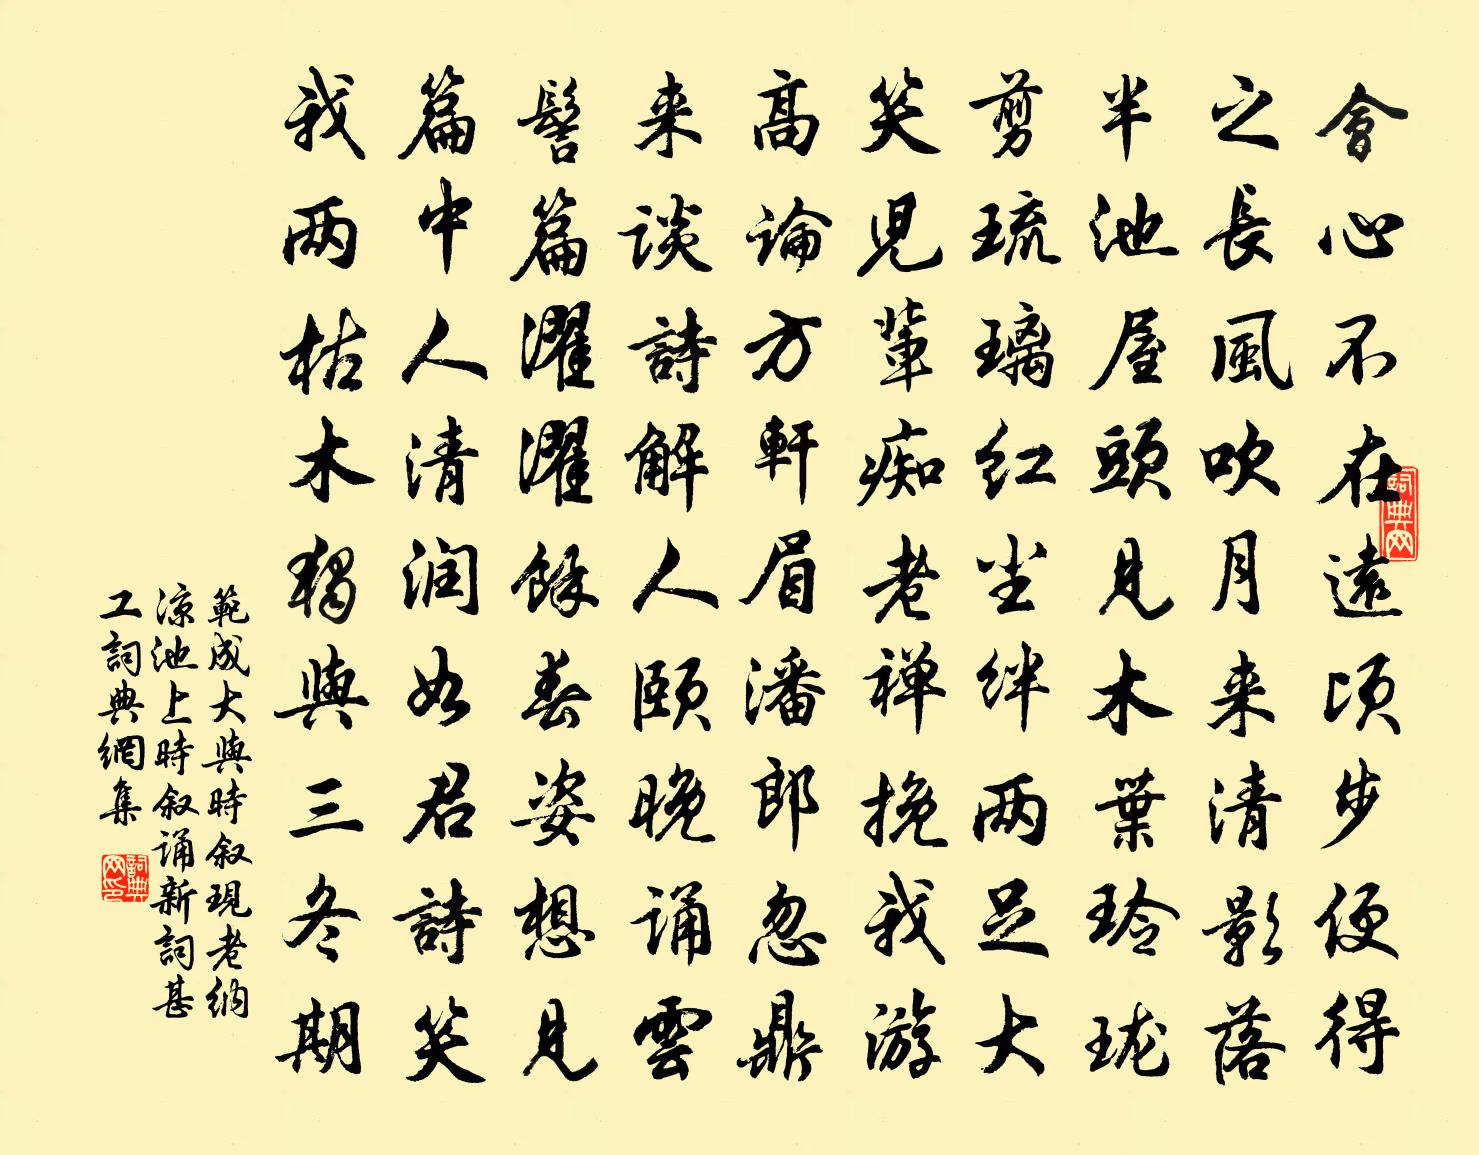 會心不在遠頃步便得
之長風吹月来清影落
半池屋頭見木葉玲珑
剪琉璃红尘绊两足大
笑児輩痴老禅挽我游
高論方軒眉潘郎忽鼎
来谈詩解人颐晚诵雲
髻篇濯濯餘春姿想見
篇中人清润如君詩笑
我两枯木獨與三冬期
範成大與時叙現老纳
凉池上時叙诵新詞甚
工詞典網集
詞典网
詞典网印